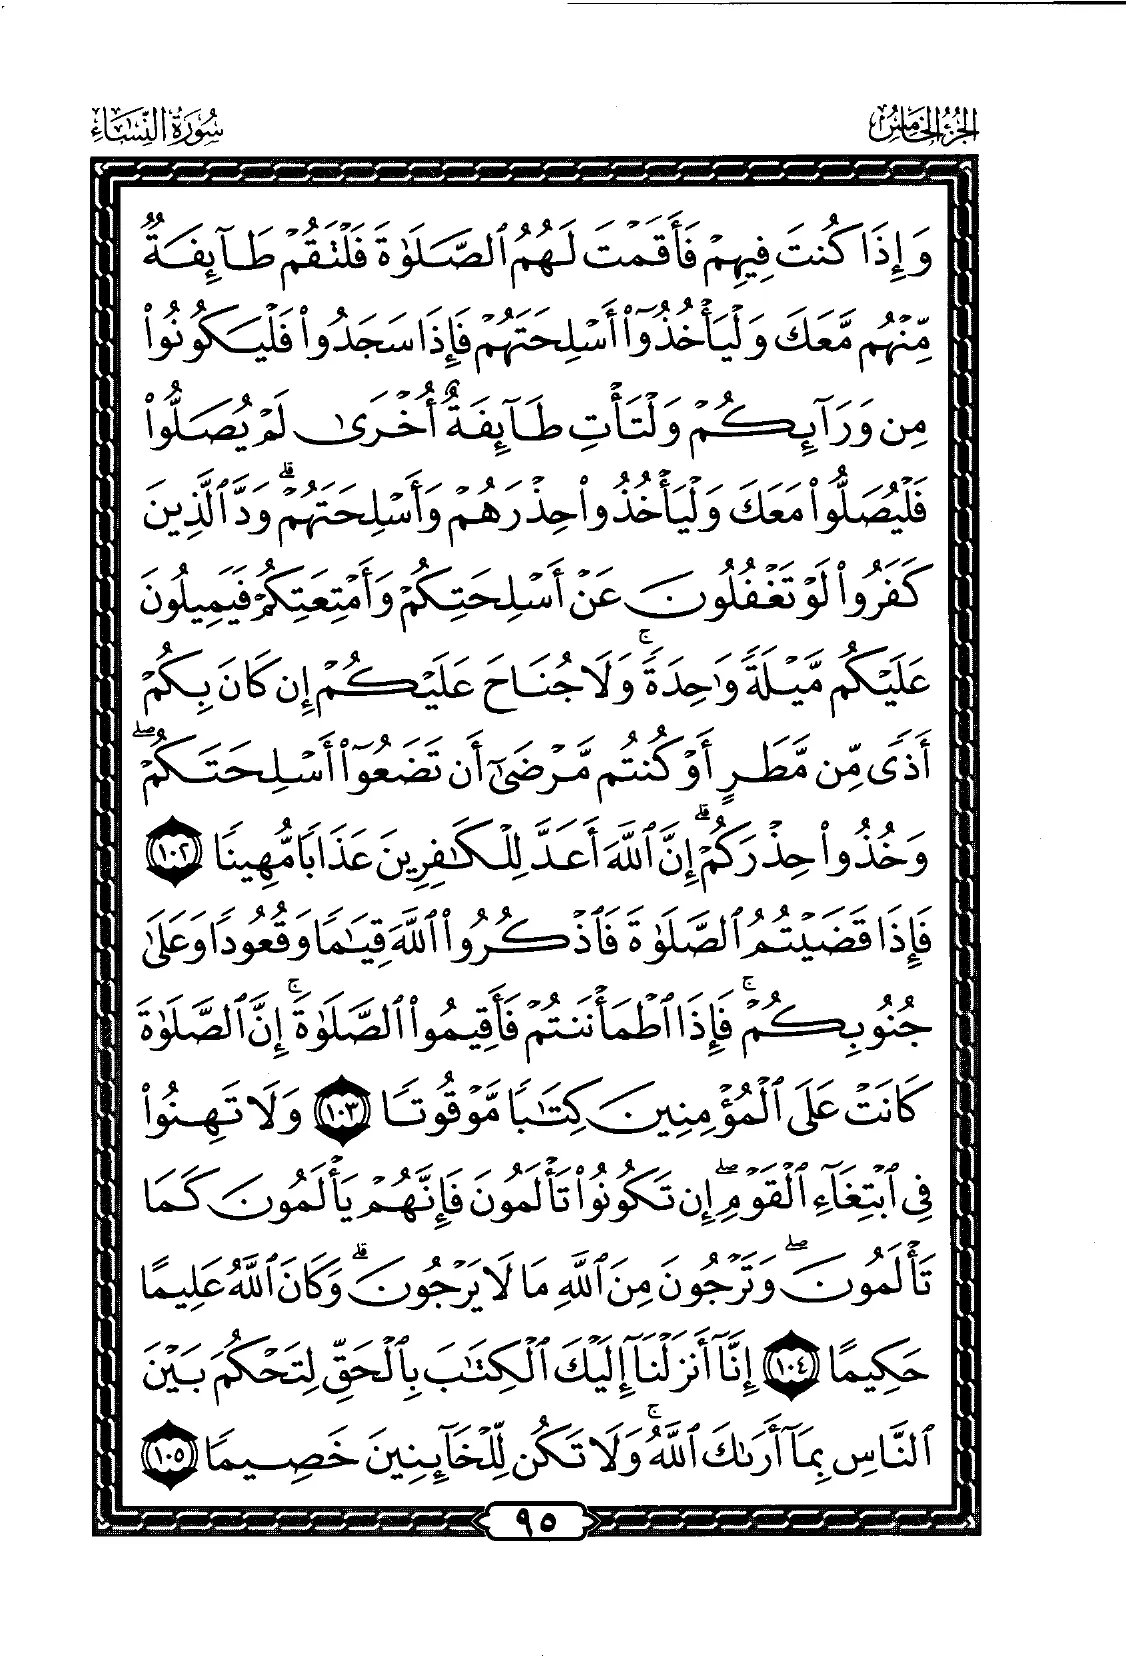 الجزء الخامس
سورة النساء
وَإِذَا كُنتَ فِيهِمۡ فَأَقَمۡتَ لَهُمُ ٱلصَّلَوٰةَ فَلۡتَقُمۡ طَآئِفَةٞ
مِّنۡهُم مَّعَكَ وَلۡيَأۡخُذُوٓاْ أَسۡلِحَتَهُمۡ فَإِذَا سَجَدُواْ فَلۡيَكُونُواْ
مِن وَرَآئِكُمۡ وَلۡتَأۡتِ طَآئِفَةٌ أُخۡرَىٰ لَمۡ يُصَلُّواْ
فَلۡيُصَلُّواْ مَعَكَ وَلۡيَأۡخُذُواْ حِذۡرَهُمۡ وَأَسۡلِحَتَهُمۡۗ وَدَّ ٱلَّذِينَ
كَفَرُواْ لَوۡ تَغۡفُلُونَ عَنۡ أَسۡلِحَتِكُمۡ وَأَمۡتِعَتِكُمۡ فَيَمِيلُونَ
عَلَيۡكُم مَّيۡلَةٗ وَٰحِدَةٗۚ وَلَا جُنَاحَ عَلَيۡكُمۡ إِن كَانَ بِكُمۡ
أَذٗى مِّن مَّطَرٍ أَوۡ كُنتُم مَّرۡضَىٰٓ أَن تَضَعُوٓاْ أَسۡلِحَتَكُمۡۖ
وَخُذُواْ حِذۡرَكُمۡۗ إِنَّ ٱللَّهَ أَعَدَّ لِلۡكَٰفِرِينَ عَذَابٗا مُّهِينٗا ١٠٢
فَإِذَا قَضَيۡتُمُ ٱلصَّلَوٰةَ فَٱذۡكُرُواْ ٱللَّهَ قِيَٰمٗا وَقُعُودٗا وَعَلَىٰ
جُنُوبِكُمۡۚ فَإِذَا ٱطۡمَأۡنَنتُمۡ فَأَقِيمُواْ ٱلصَّلَوٰةَۚ إِنَّ ٱلصَّلَوٰةَ
كَانَتۡ عَلَى ٱلۡمُؤۡمِنِينَ كِتَٰبٗا مَّوۡقُوتٗا ١٠٣ وَلَا تَهِنُواْ
فِي ٱبۡتِغَآءِ ٱلۡقَوۡمِۖ إِن تَكُونُواْ تَأۡلَمُونَ فَإِنَّهُمۡ يَأۡلَمُونَ كَمَا
تَأۡلَمُونَۖ وَتَرۡجُونَ مِنَ ٱللَّهِ مَا لَا يَرۡجُونَۗ وَكَانَ ٱللَّهُ عَلِيمًا
حَكِيمًا ١٠٤ إِنَّآ أَنزَلۡنَآ إِلَيۡكَ ٱلۡكِتَٰبَ بِٱلۡحَقِّ لِتَحۡكُمَ بَيۡنَ
ٱلنَّاسِ بِمَآ أَرَىٰكَ ٱللَّهُۚ وَلَا تَكُن لِّلۡخَآئِنِينَ خَصِيمٗا ١٠٥
٩٥